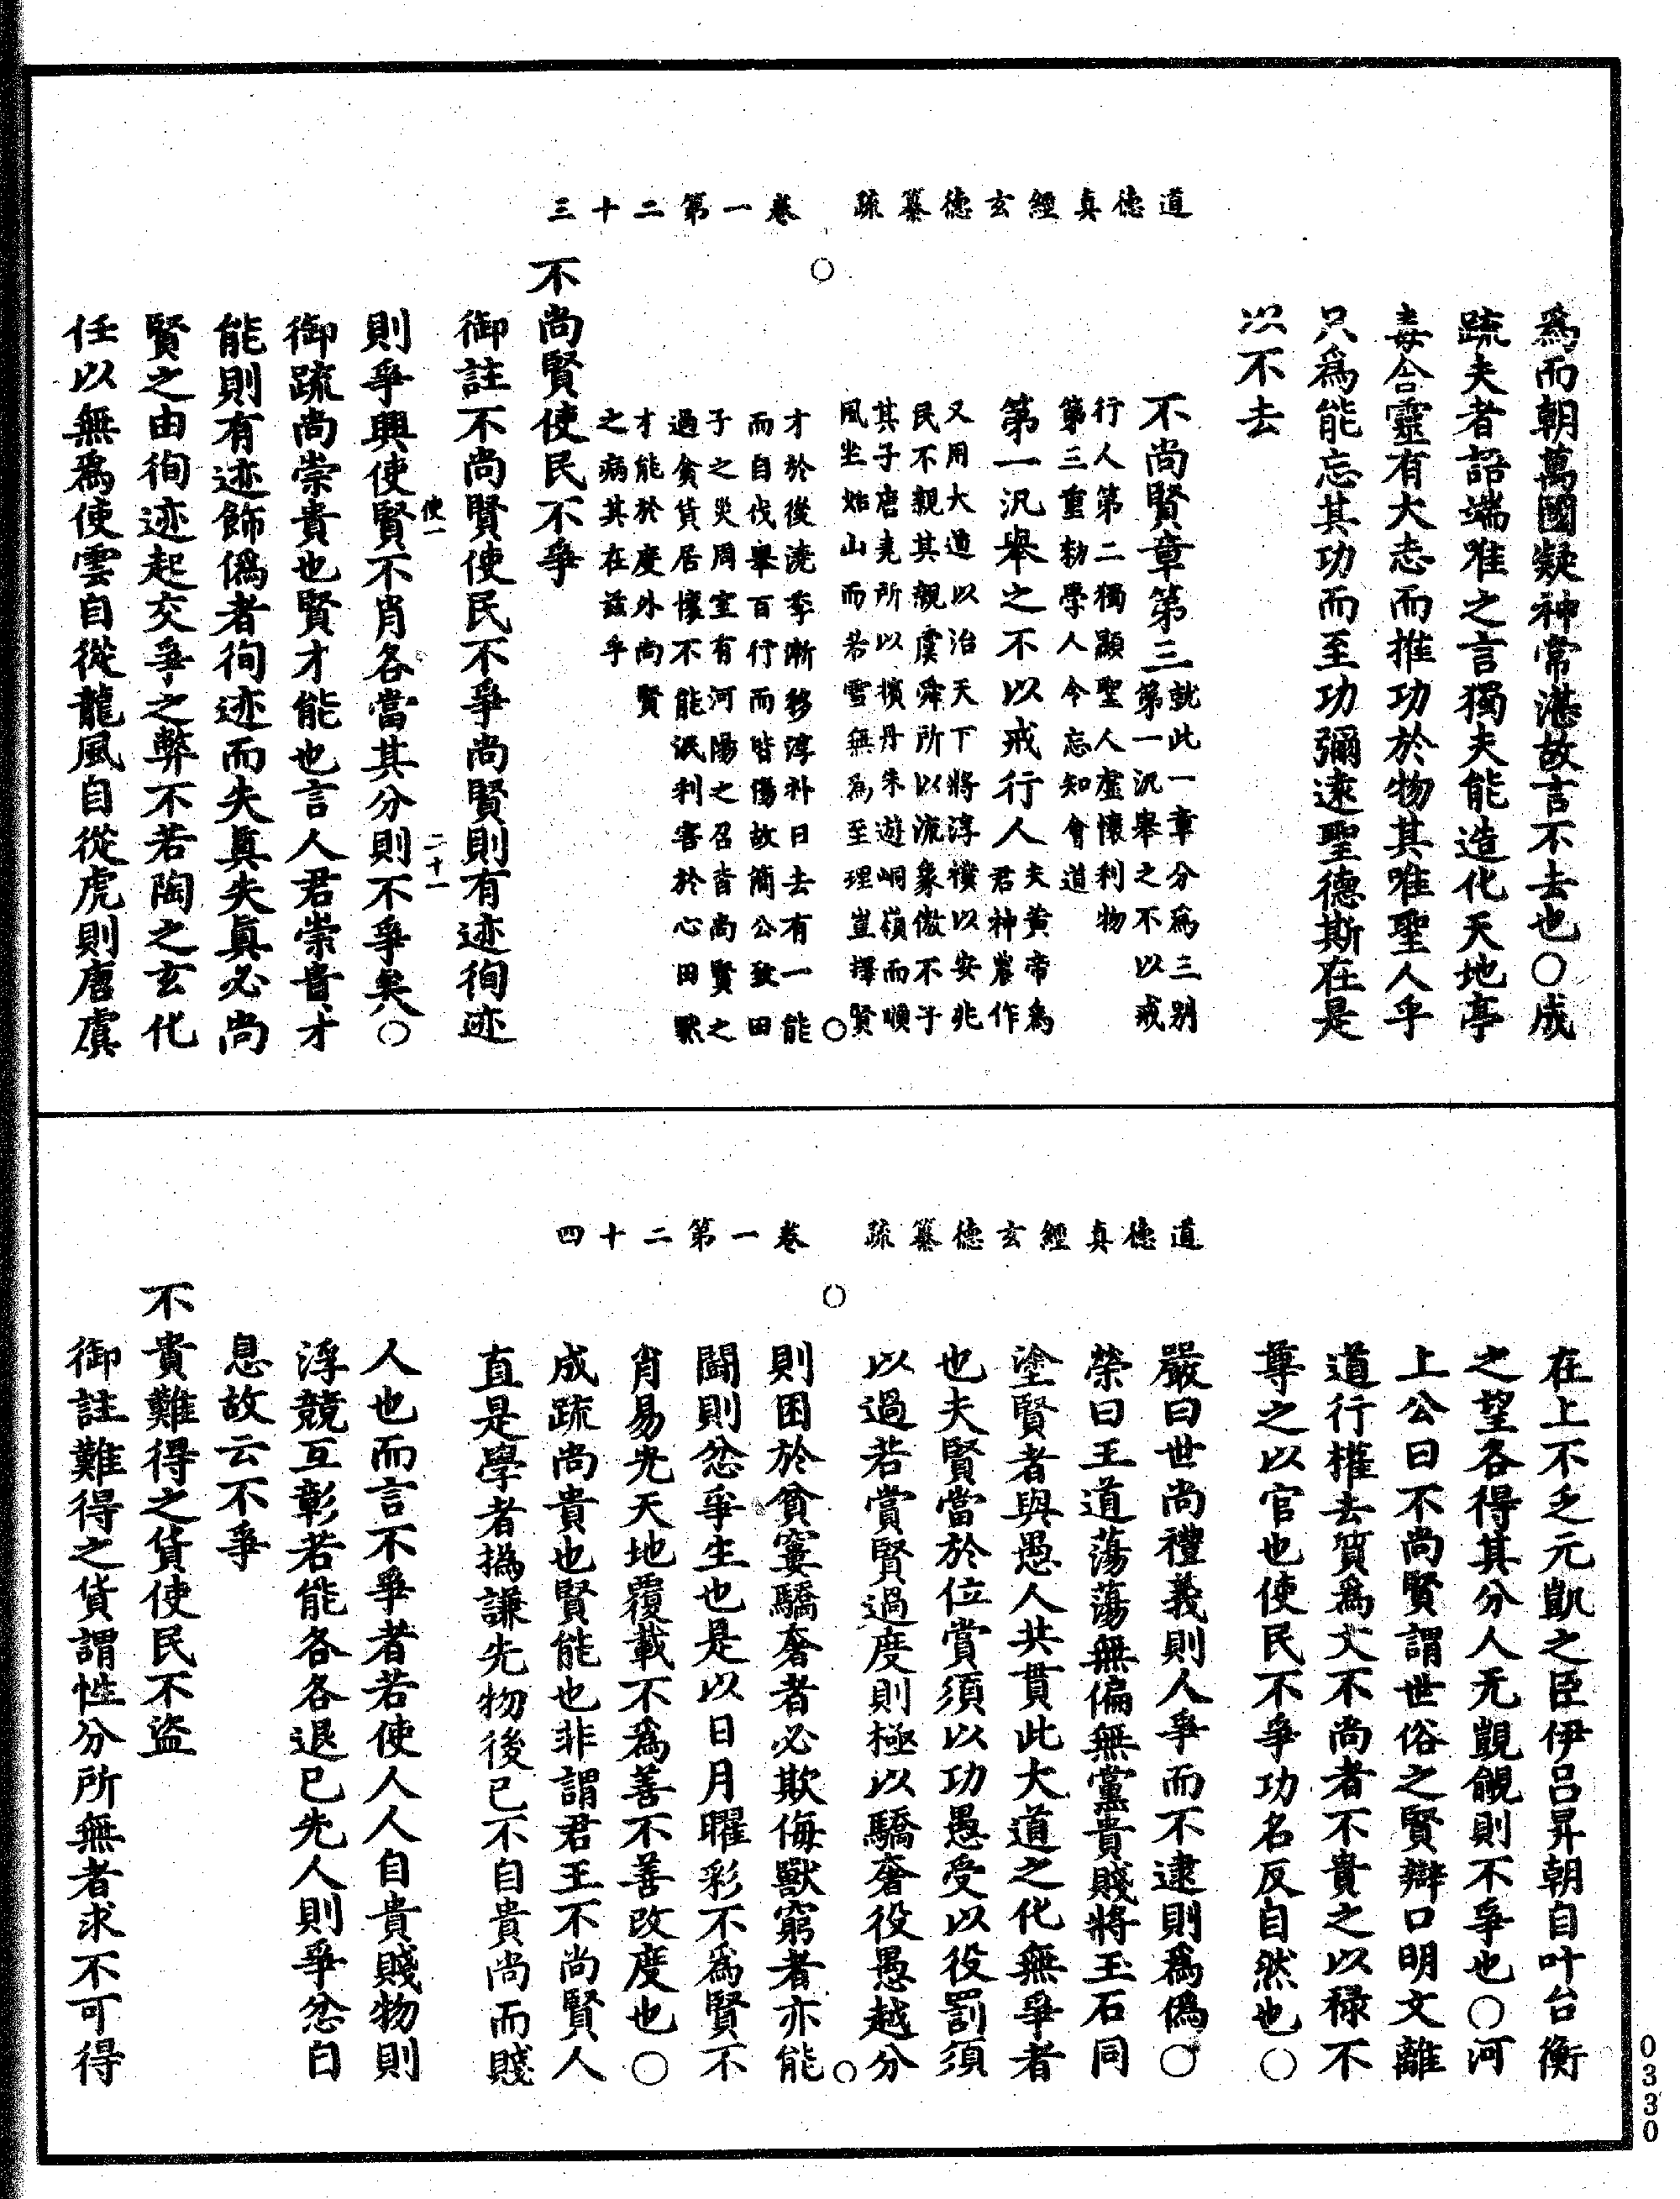 道德真經玄德纂疏　卷一第二十三
爲而朝萬國凝神常湛故言不去也○成
疏夫者語端唯之言獨夫能造化天地亭
毒含靈有大志而推功於物其唯聖人乎
只爲能忘其功而至功彌遠聖德斯在是
以不去
不尚賢章第三就此一章分爲三别
第一汎舉之不以戒
行人第二獨顯聖人虛懷利物
第三重勑學人令忘知會道
第一汎舉之不以戒行人夫黄帝爲
君神農作
又用大道以治天下將淳樸以安兆
民不親其親虞舜所以流象傲不子
其子唐堯所以擯丹朱遊峒嶺而順
風坐姑山而若雪無爲至理豈擇賢
才於後澆季漸移淳朴日去有一能
而自伐舉百行而皆傷故簡公致田
子之災周室有河陽之召昔尚賢之
過貪貨居懷不能泯利害於心田獸
才能於度外尚賢
之病其在兹乎
不尚賢使民不爭
御註不尚賢使民不爭尚賢則有迹徇迹
則爭興使賢不肖各當其分則不爭矣○
使一
二十一
御疏尚崇貴也賢才能也言人君崇貴才
能則有迹飾僞者徇迹而失眞失眞必尚
賢之由徇迹起交爭之弊不若陶之玄化
任以無爲使雲自從龍風自從虎則唐虞
道德真經玄德纂疏　卷一第二十四
在上不乏元凱之臣伊吕昇朝自叶台衡
之望各得其分人无覬覦則不爭也○河
上公曰不尚賢謂世俗之賢辯口明文離
道行權去質爲文不尚者不貴之以祿不
尊之以官也使民不爭功名反自然也○
嚴曰世尚禮義則人爭而不逮則爲僞○
榮曰王道蕩蕩無偏無黨貴賤將玉石同
塗賢者與愚人共貫此大道之化無爭者
也夫賢當於位賞須以功愚受以役罰須
以過若賞賢過度則極以驕奢役愚越分
則困於貧窶驕奢者必欺侮獸窮者亦能
鬬則忿爭生也是以日月曜彩不爲賢不
肖易光天地覆載不爲善不善改度也○
成疏尚貴也賢能也非謂君王不尚賢人
直是學者撝謙先物後己不自貴尚而賤
人也而言不爭者若使人人自貴賤物則
浮競互彰若能各各退己先人則爭忿自
息故云不爭
不貴難得之貨使民不盜
御註難得之貨謂性分所無者求不可得
0330